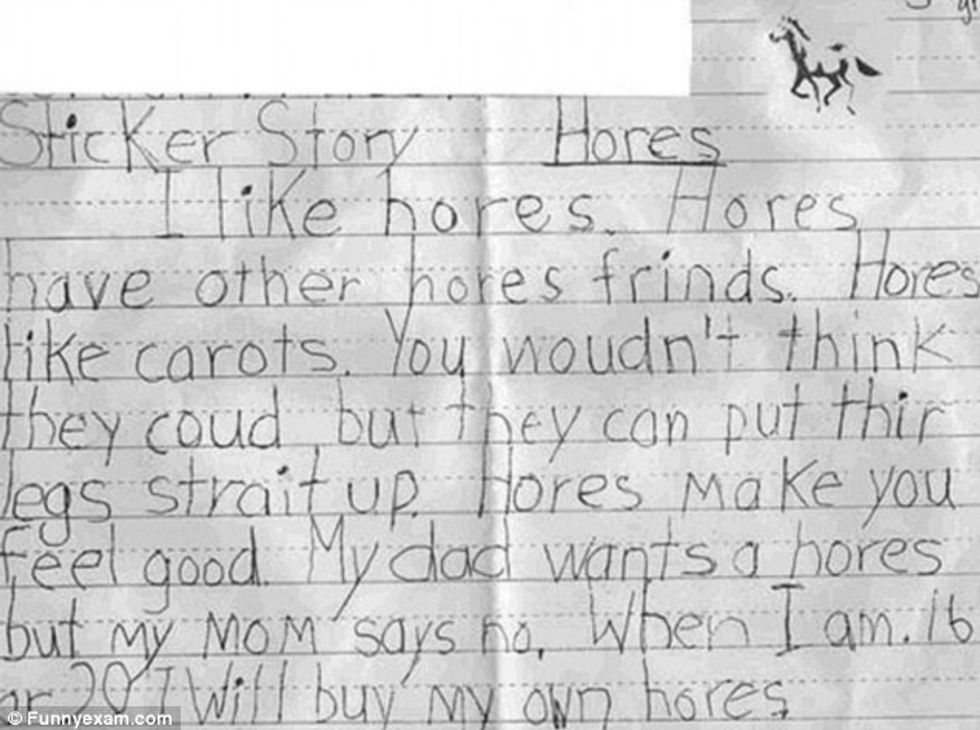 Sticker Story Hores
I like hores. Hores
have other hores frinds. Hores
like carots. You woudn't think
they coud but they can put thir
legs strait up. Hores make you
feel good. My dad wants a hores
but my mom says no. When I am. 16
or 20 I will buy my own hores
© Funnyexam.com